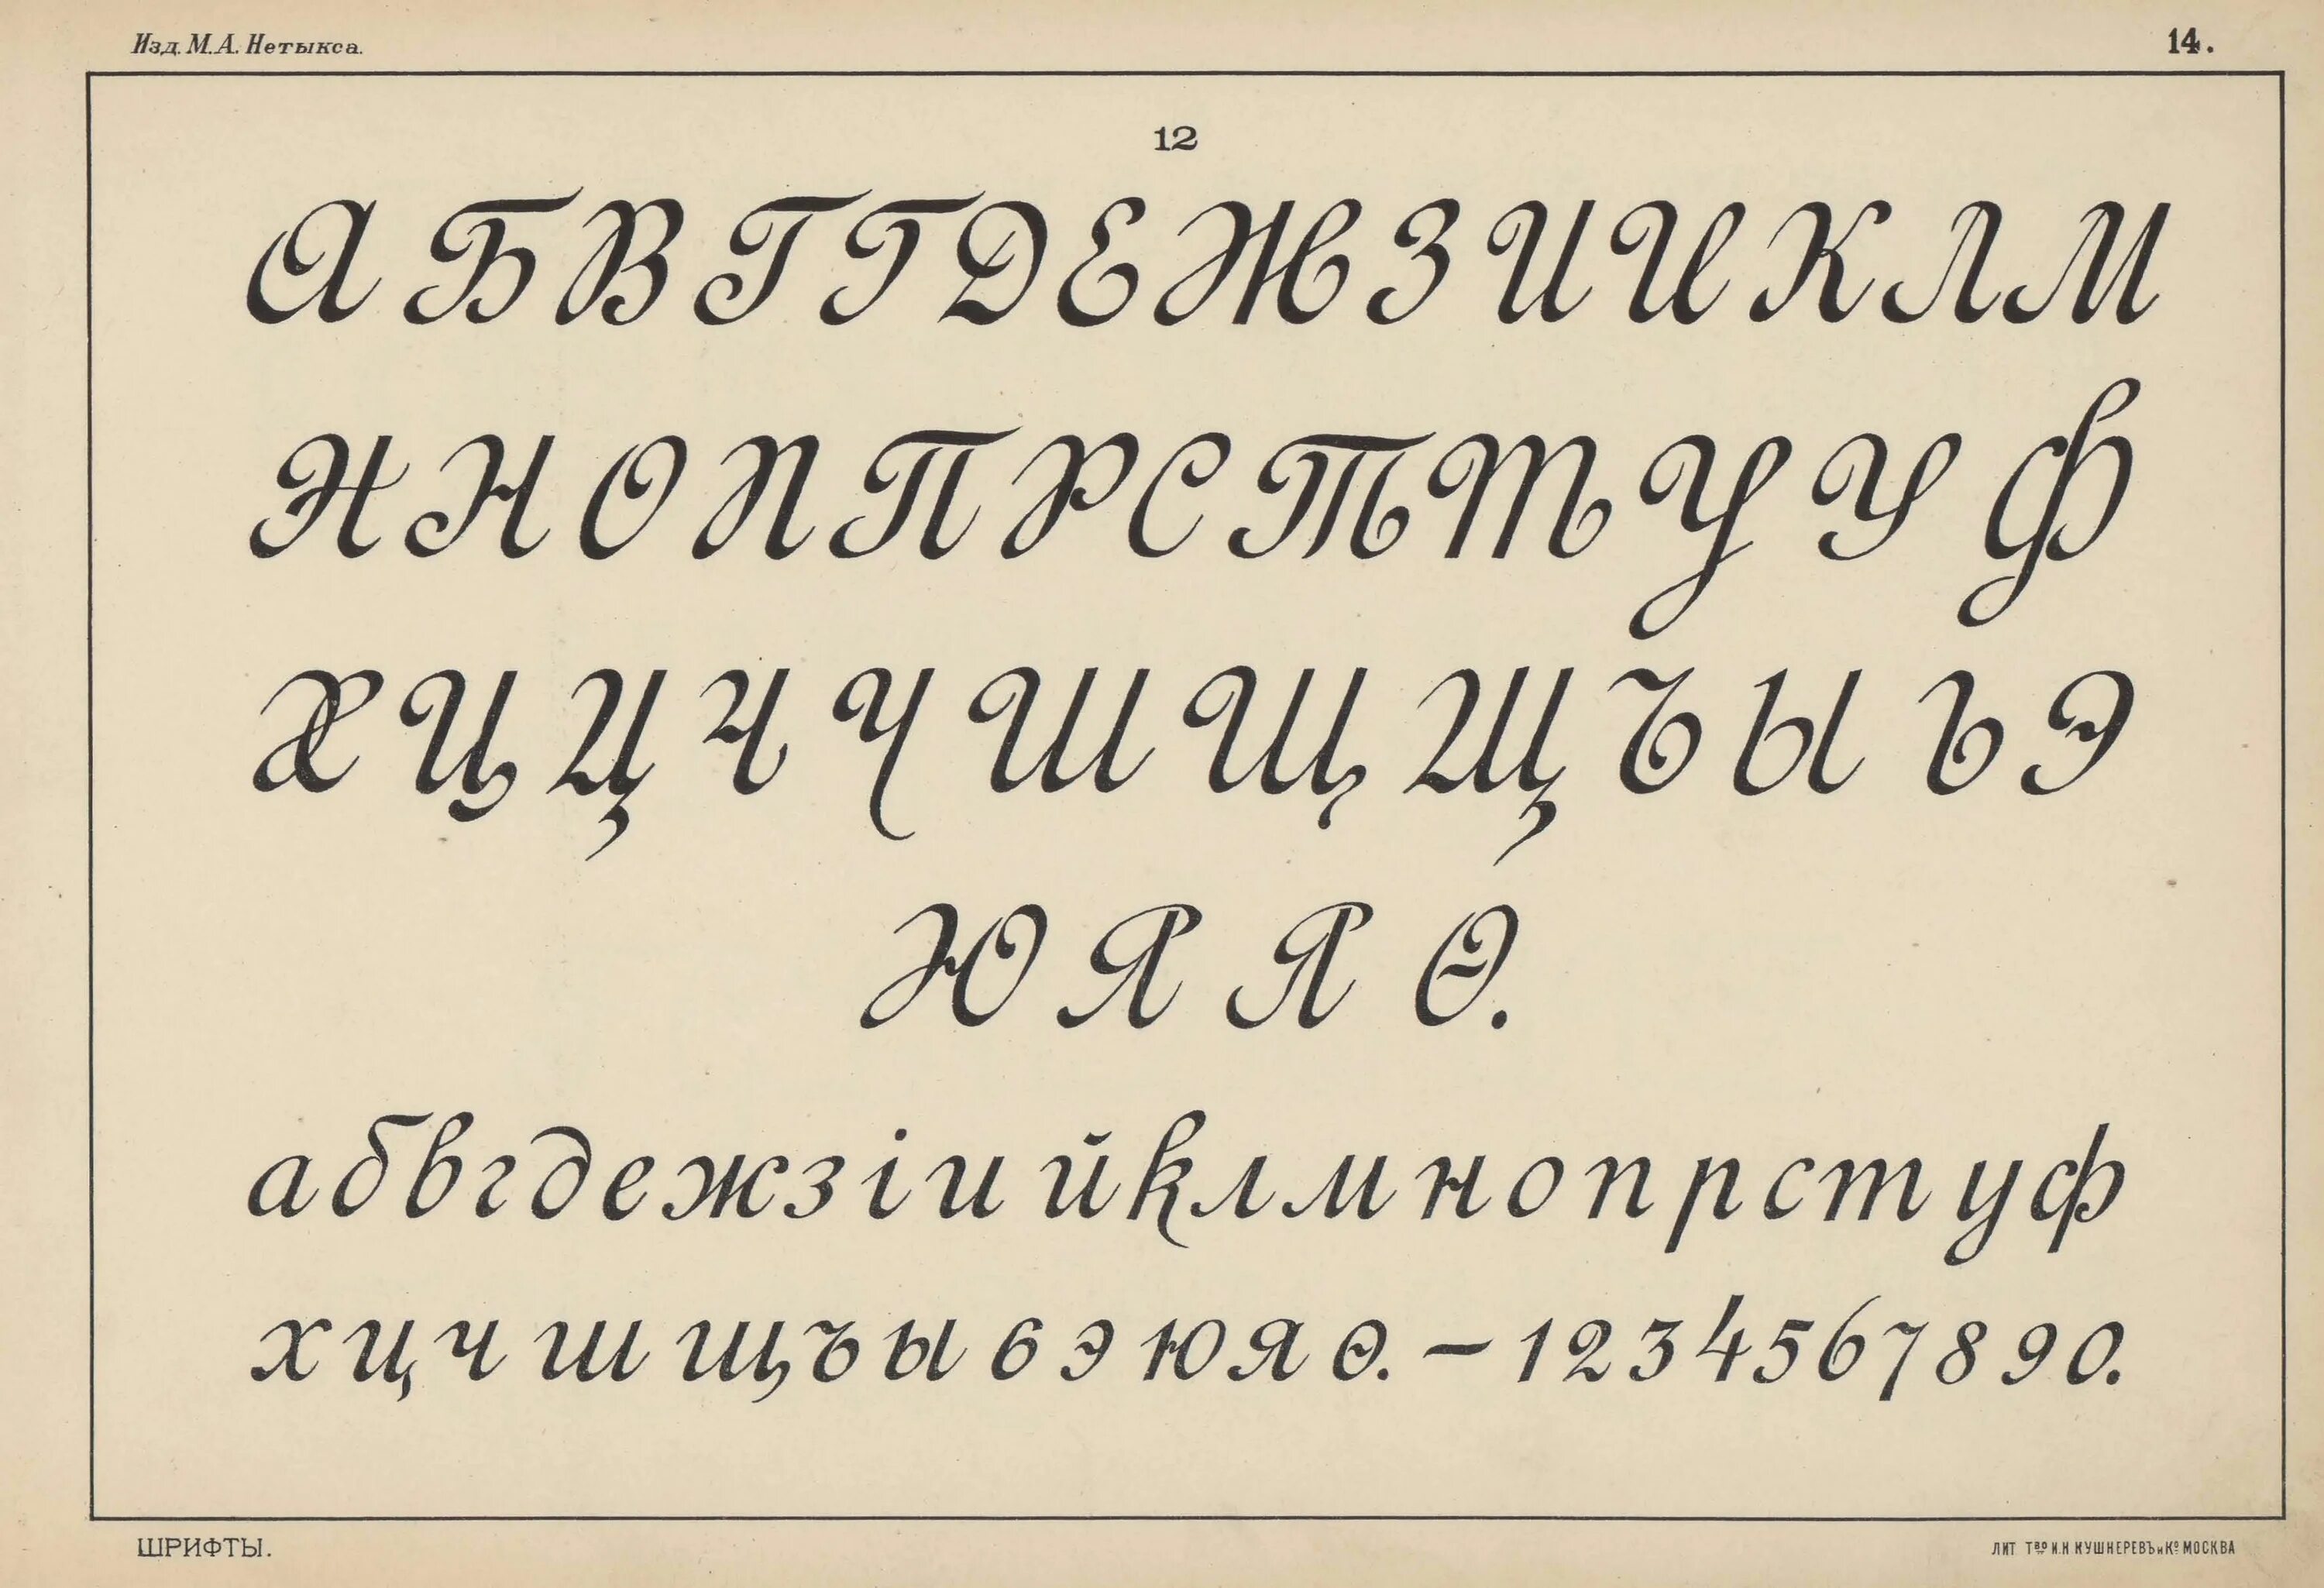 Изд. М.А. Нетыкса.
14.
12
А Б В Г Г Д Е Ж З И И К Л М
Н Н О П П Р С Т Т У У Ф
Х Ц Ц Ч Ч Ш Щ Щ Ъ Ы Ь Э
Ю Я Я Ѳ.
а б в г д е ж з і и й к л м н о п р с т у ф
х ц ч ш щ ъ ы ь э ю я ѳ. — 1 2 3 4 5 6 7 8 9 0.
ШРИФТЫ.
ЛИТ Тво И.Н КУШНЕРЕВЪ и Ко МОСКВА